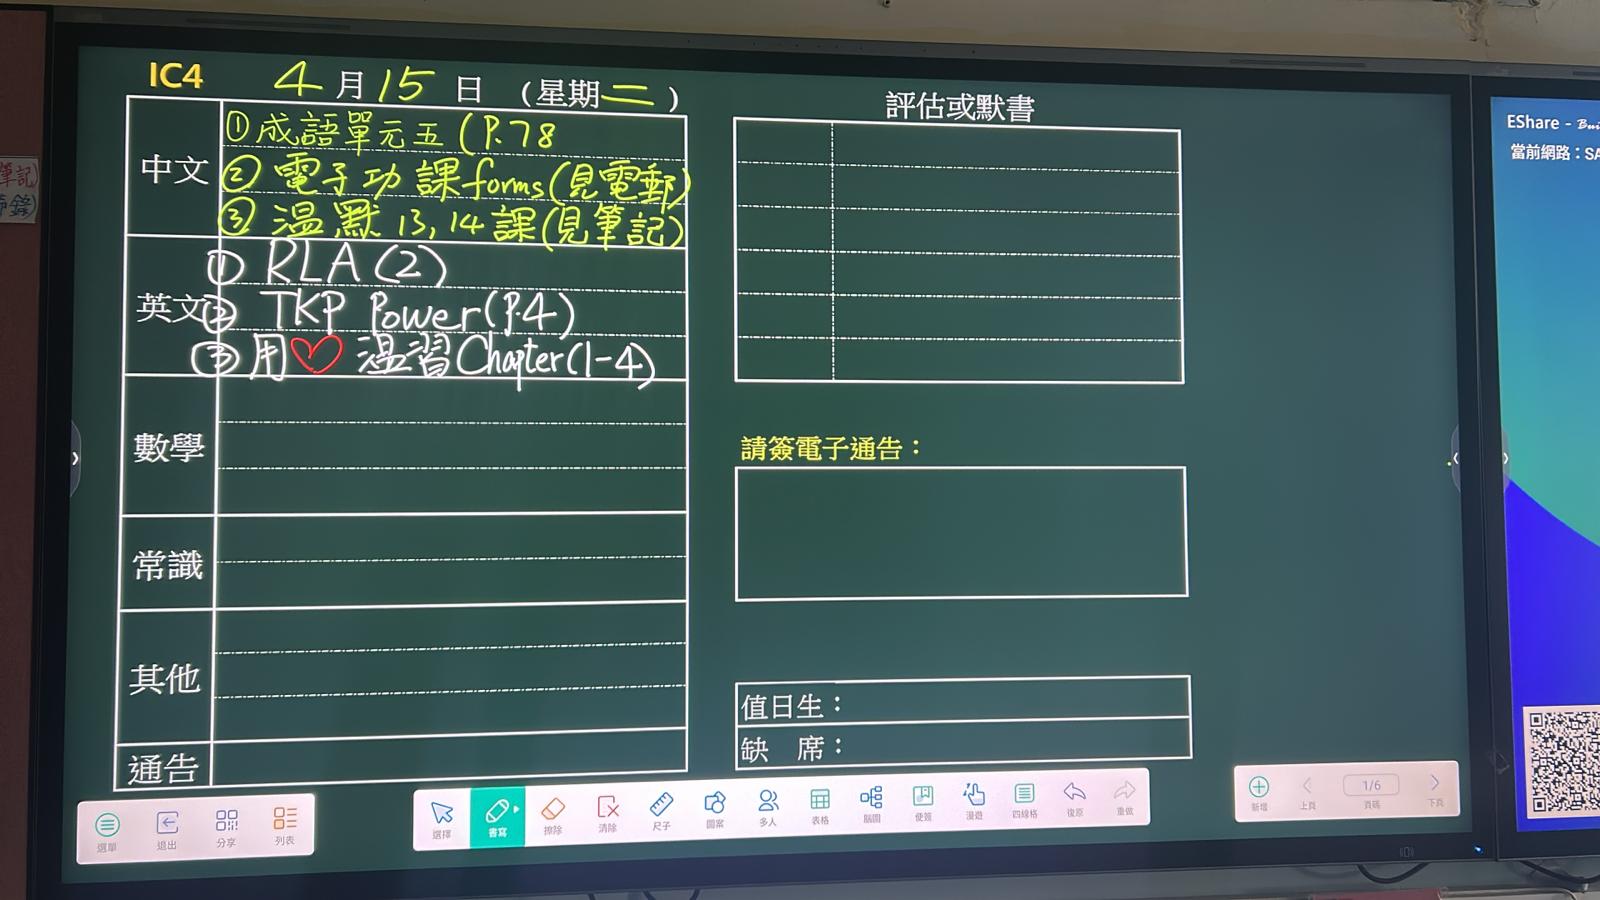 IC4 4月15日 (星期二)
中文
①成語單元五(P.78
②電子功課forms(見電郵)
③溫默13,14課(見筆記)
英文
① RLA(2)
② TKP Power(P.4)
③用♡溫習Chapter(1-4)
數學
常識
其他
通告
評估或默書
請簽電子通告：
值日生：
缺 席：
選單
退出
分享
列表
選擇
書寫
擦除
清除
尺子
圖案
多人
表格
腦圖
便簽
漫遊
四線格
復原
重做
新增
上頁
1/6
頁碼
下頁
EShare -
當前網路：SA
筆記)